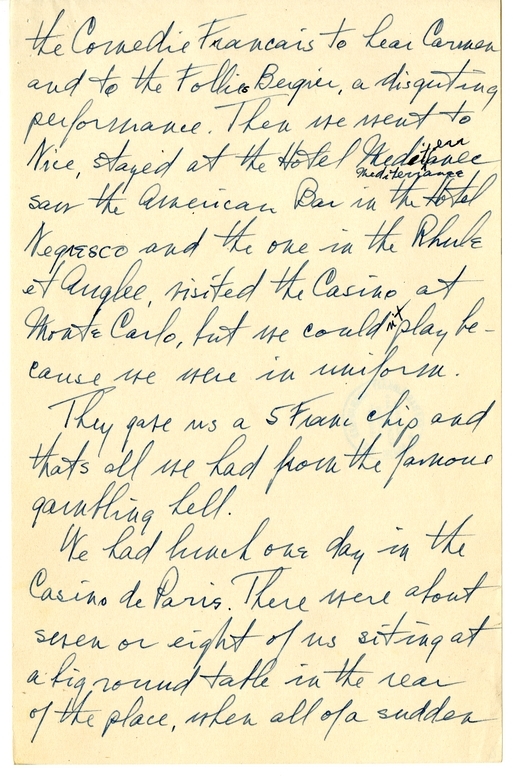 the Comedie Francais to hear Carmen
and to the Follies Bergier, a disguting
performance. Then we went to
Nice, stayed at the Hotel Mediterranee
mediterranee
saw the American Bar in the Hotel
Negresco and the one in the Rhule
et Anglee, visited the Casino at
Monte Carlo, but we could n't play be-
cause we were in uniform.
They gave us a 5 Franc chip and
thats all we had from the famous
gambling hell.
We had lunch one day in the
Casino de Paris. There were about
seven or eight of us sitting at
a big round table in the rear
of the place, when all of a sudden